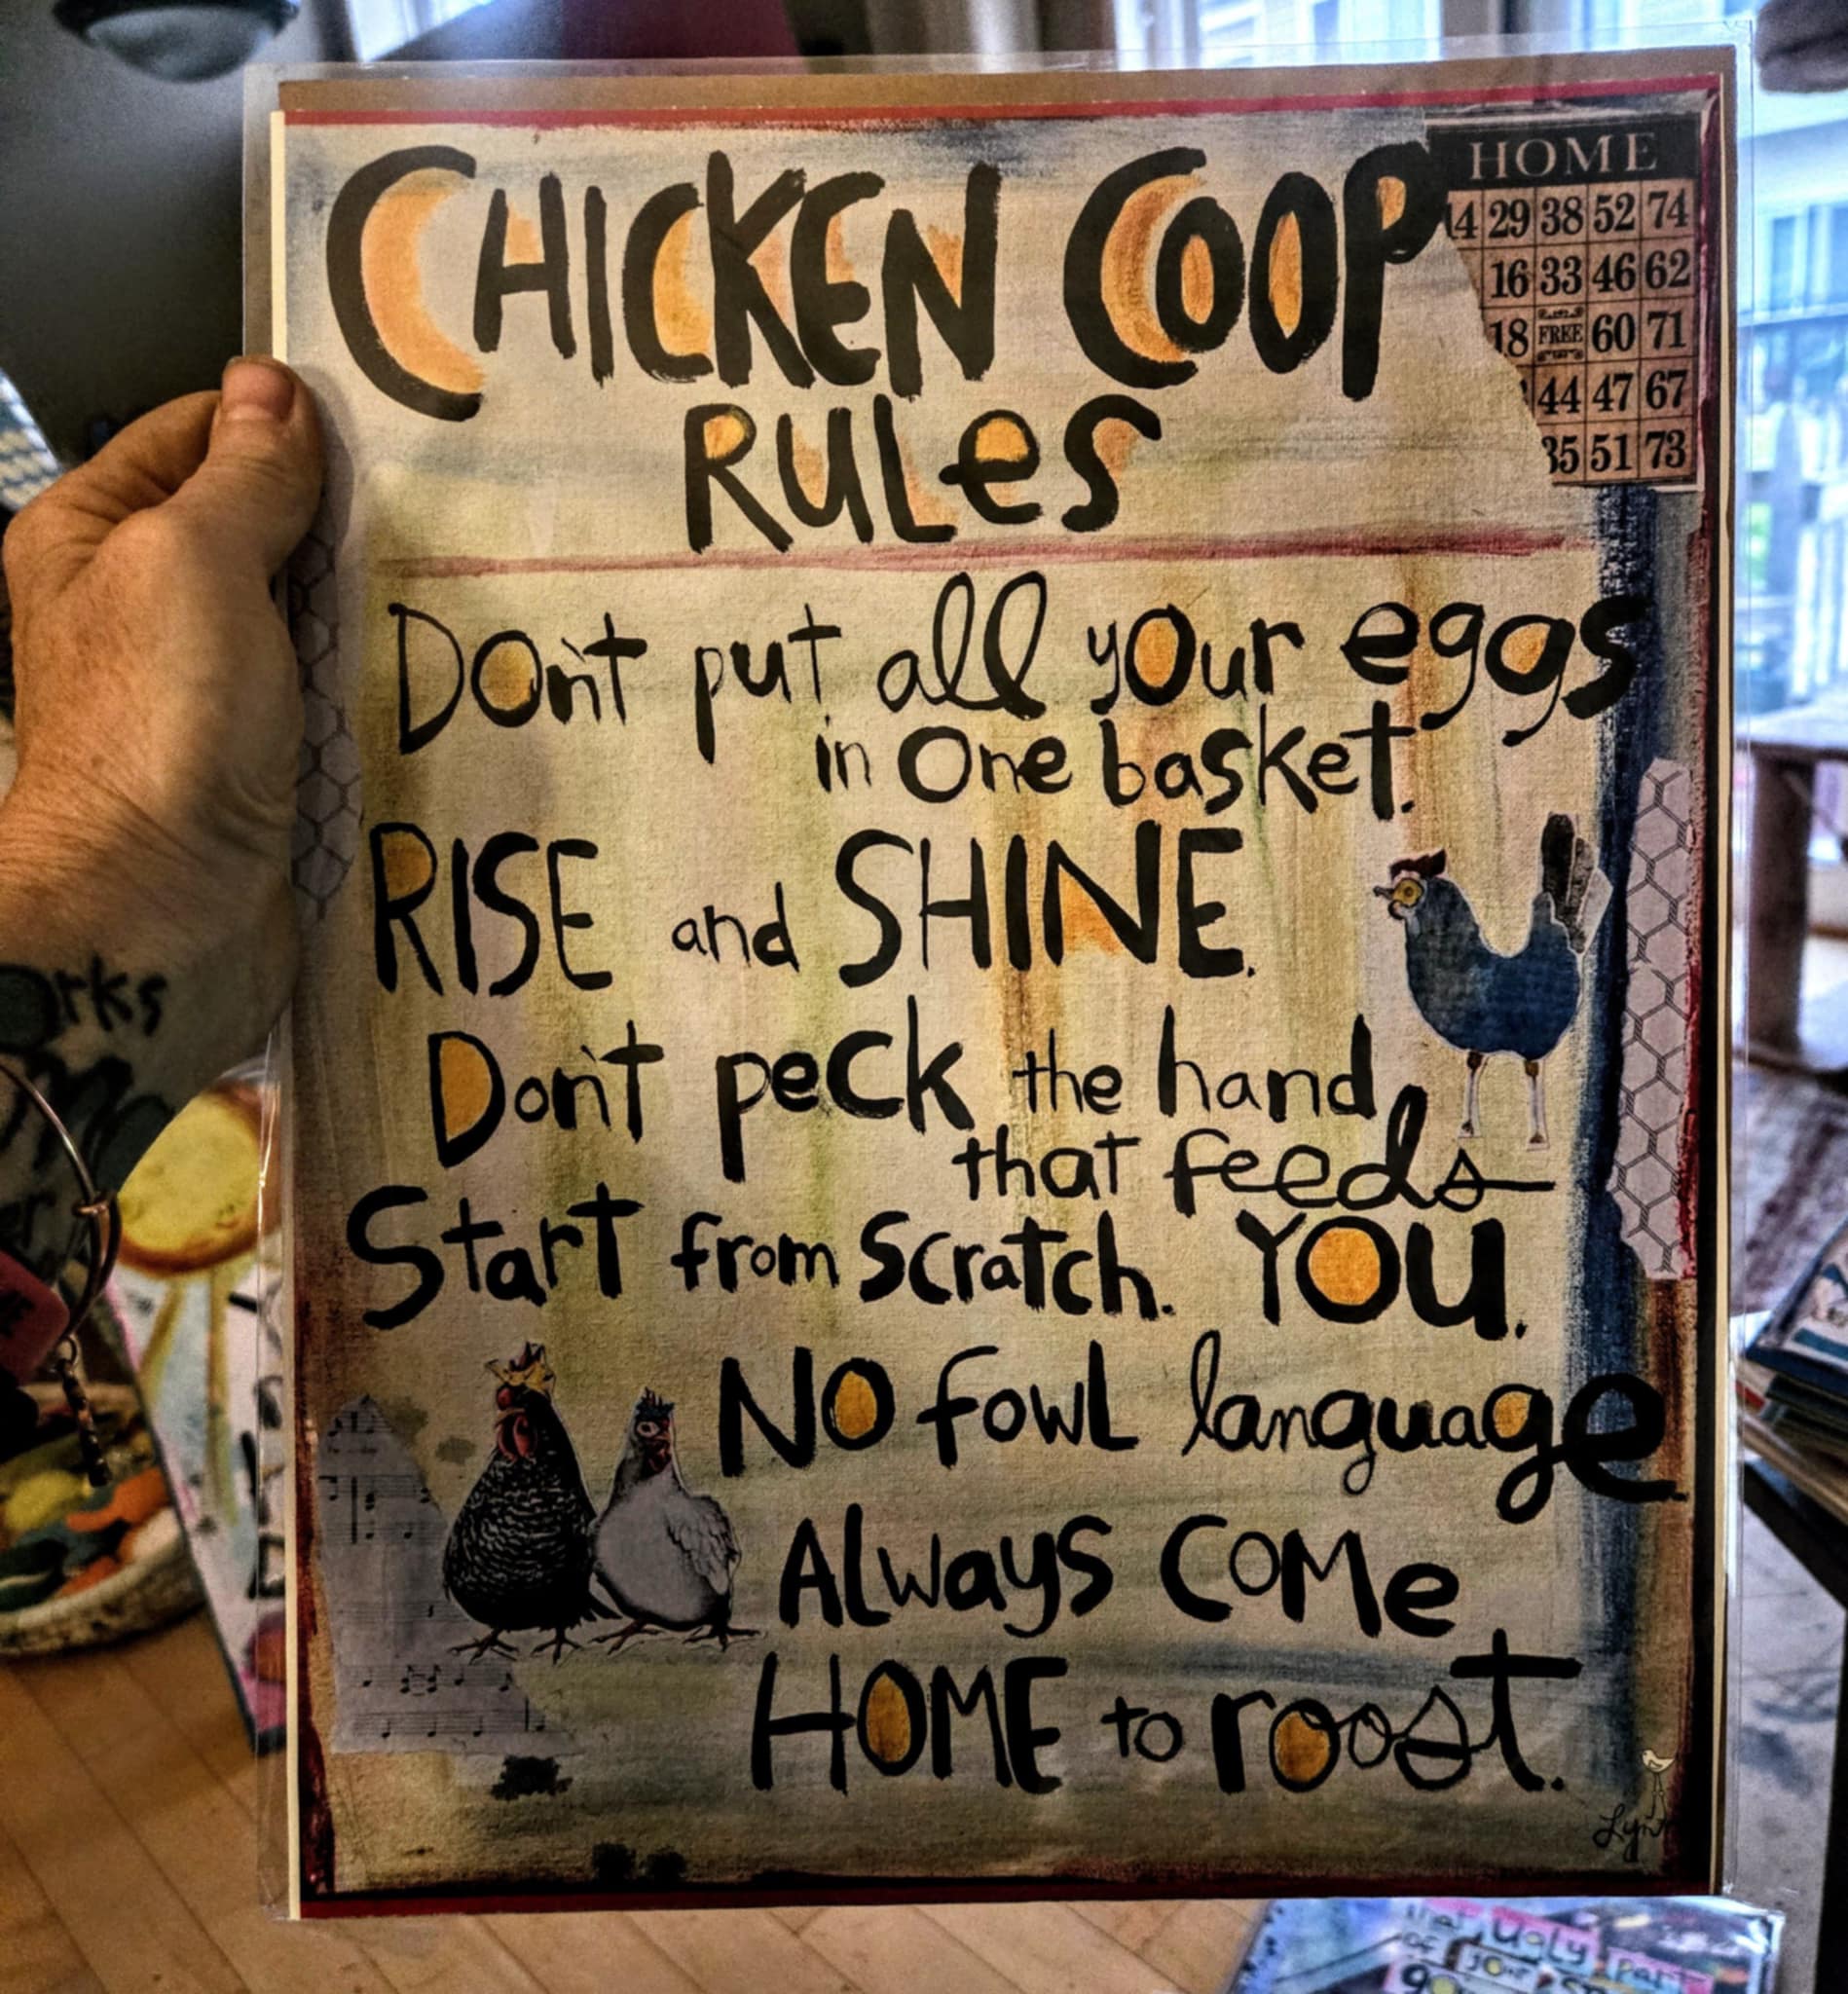 CHICKEN COOP
RULES
HOME
14 29 38 52 74
16 33 46 62
18 FREE 60 71
44 47 67
35 51 73
Don't put all your eggs
in one basket.
RISE and SHINE.
Don't peck the hand
that feeds
YOU.
Start from scratch.
NO fowl language
Always come
HOME to roost.
Lynn
orks
ugly part
of your